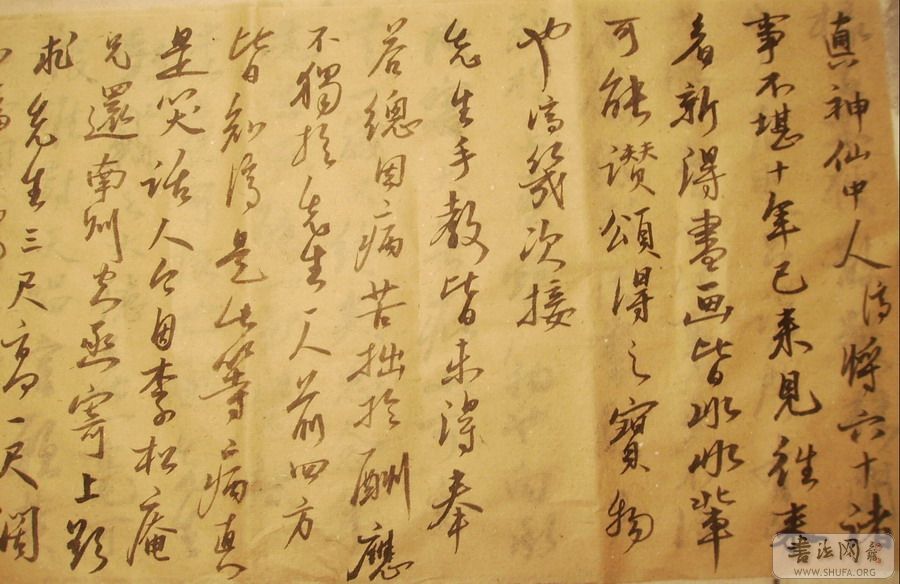 真神仙中人濟將六十諸
事不堪十年已来見往来
者新得書画皆非濟輩
可能讚頌得之寶物
也濟幾次接
先生手教皆未得奉
荅總因病苦拙於酬應
不獨於先生一人前四方
皆知濟是此等病真
是笑話人今因李松庵
兄還南州空函寄上欲
求先生三尺高一尺闊
書法网
WWW.SHUFA.ORG